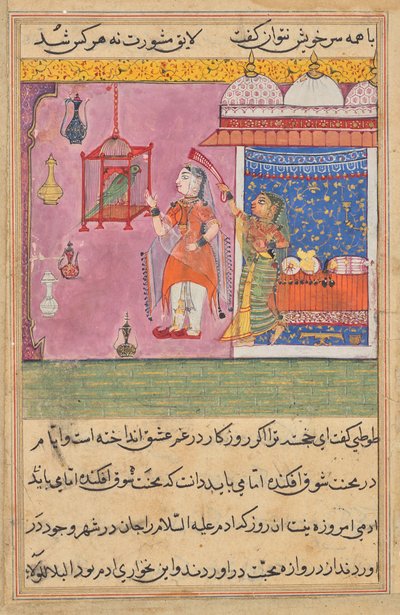 با همه سر خویش نتوان گفت لایق مشورت نه هر کس شد
طوطی گفت ای خجسته ترا اکر روزکار در غم عشق انداخته است و ایام
در محنت شوق افکنده اما می باید دانست که محنت شوق افکنده اما می باید
ادمی امروزه نیست ان روز که ادم علیه السلام را جان در شهر وجود در
اوردند از دروازه محبت در اوردند و این نخواری ادم بود البلا للولا